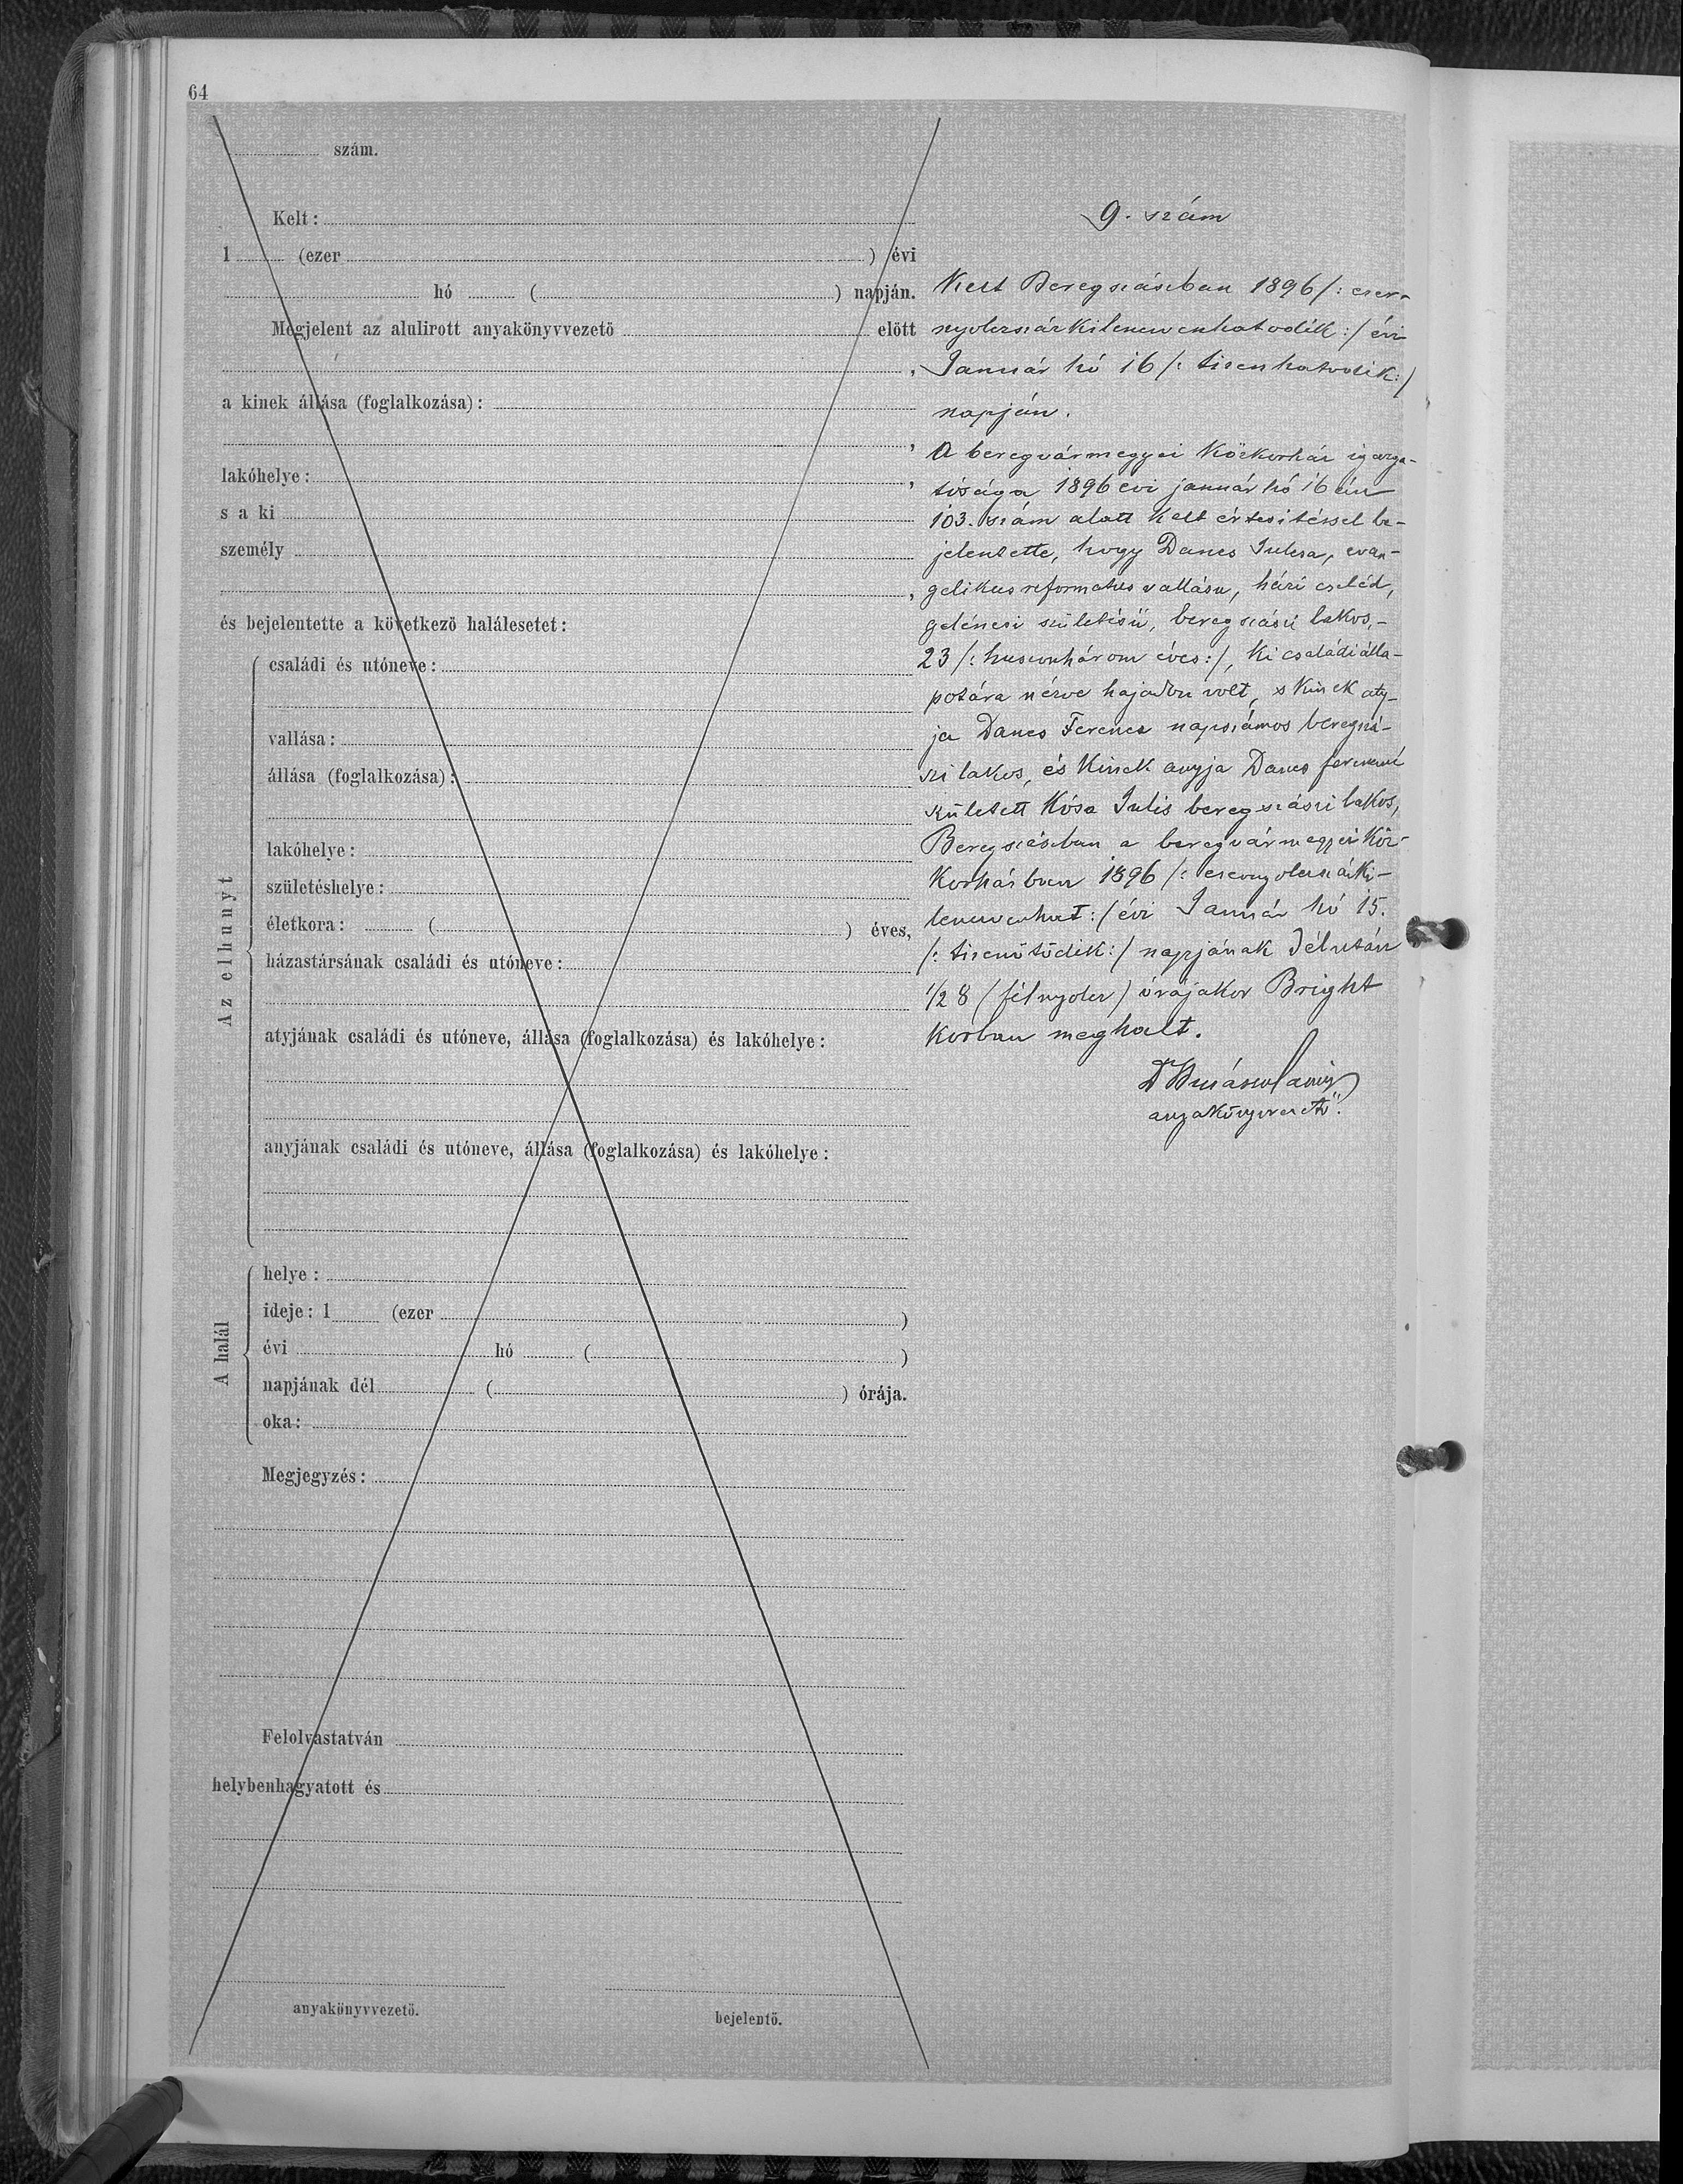 64
szám.
Kelt:
1 (ezer ) évi
hó ( ) napján.
Megjelent az alulirott anyakönyvvezető előtt
,
a kinek állása (foglalkozása):
,
lakóhelye: ,
s a ki
személy
,
és bejelentette a következő halálesetet:
Az elhunyt
családi és utóneve:
vallása:
állása (foglalkozása):
lakóhelye:
születéshelye:
életkora: ( ) éves,
házastársának családi és utóneve:
atyjának családi és utóneve, állása (foglalkozása) és lakóhelye:
anyjának családi és utóneve, állása (foglalkozása) és lakóhelye:
A halál
helye:
ideje: 1 (ezer )
évi hó ( )
napjának dél ( ) órája.
oka:
Megjegyzés:
Felolvastatván
helybenhagyatott és
anyakönyvvezető.
bejelentő.
9. szám
Kelt Beregszászban 1896 /: ezer-
nyolczszázkilenczvenhatodik :/ évi
Január hó 16 /: tizenhatodik :/
napján.
A beregvármegyei Közkorház igazga-
tósága 1896 évi január hó 16 án
103. szám alatt kelt értesitéssel be-
jelentette, hogy Dancs Julcsa, evan-
gelikus reformatus vallásu, házi cseléd,
gelénesi születésü, beregszászi lakos,-
23 /: huszonhárom éves :/, ki családi álla-
potára nézve hajadon volt, s kinek aty-
ja Dancs Ferencz napszámos beregszá-
szi lakos, és kinek anyja Dancs ferenczné
született Kósa Julis beregszászi lakos,
Beregszászban a beregvármegyei Köz-
korházban 1896 /: ezernyolczszázki-
lenczvenhat :/ évi Január hó 15.
/: tizenötödik :/ napjának délután
1/2 8 (fél nyolcz) órájakor Bright
korban meghalt.
anyakönyvvezető.